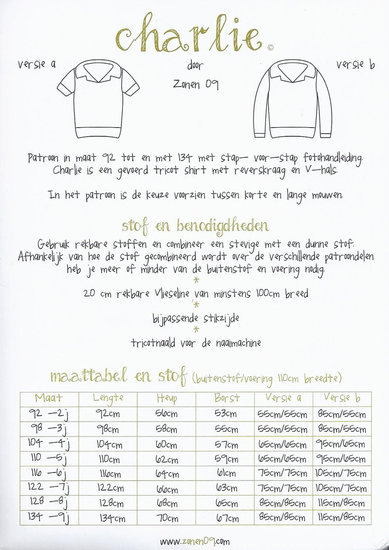 charlie ©
versie a
door
versie b
Zonen 09
Patroon in maat 92 tot en met 134 met stap- voor-stap fotohandleiding.
Charlie is een gevoerd tricot shirt met reverskraag en V-hals.
In het patroon is de keuze voorzien tussen korte en lange mouwen.
stof en benodigdheden
Gebruik rekbare stoffen en combineer een stevige met een dunne stof.
Afhankelijk van hoe de stof gecombineerd wordt over de verschillende patroondelen
heb je meer of minder van de buitenstof en voering nodig.
*
20 cm rekbare Vlieseline van minstens 100cm breed
*
bijpassende stikzijde
*
tricotnaald voor de naaimachine
maattabel en stof (buitenstof/voering 110cm breedte)
Maat Lengte Heup Borst Versie a Versie b
92 -2j 92cm 56cm 53cm 55cm/55cm 85cm/55cm
98 -3j 98cm 58cm 55cm 55cm/55cm 85cm/55cm
104 -4j 104cm 60cm 57cm 65cm/65cm 95cm/65cm
110 -5j 110cm 62cm 59cm 65cm/65cm 95cm/65cm
116 -6j 116cm 64cm 61cm 75cm/75cm 105cm/75cm
122 -7j 122cm 66cm 63cm 75cm/75cm 105cm/75cm
128 -8j 128cm 68cm 65cm 85cm/85cm 115cm/85cm
134 -9j 134cm 70cm 67cm 85cm/85cm 115cm/85cm
www.zonen09.com